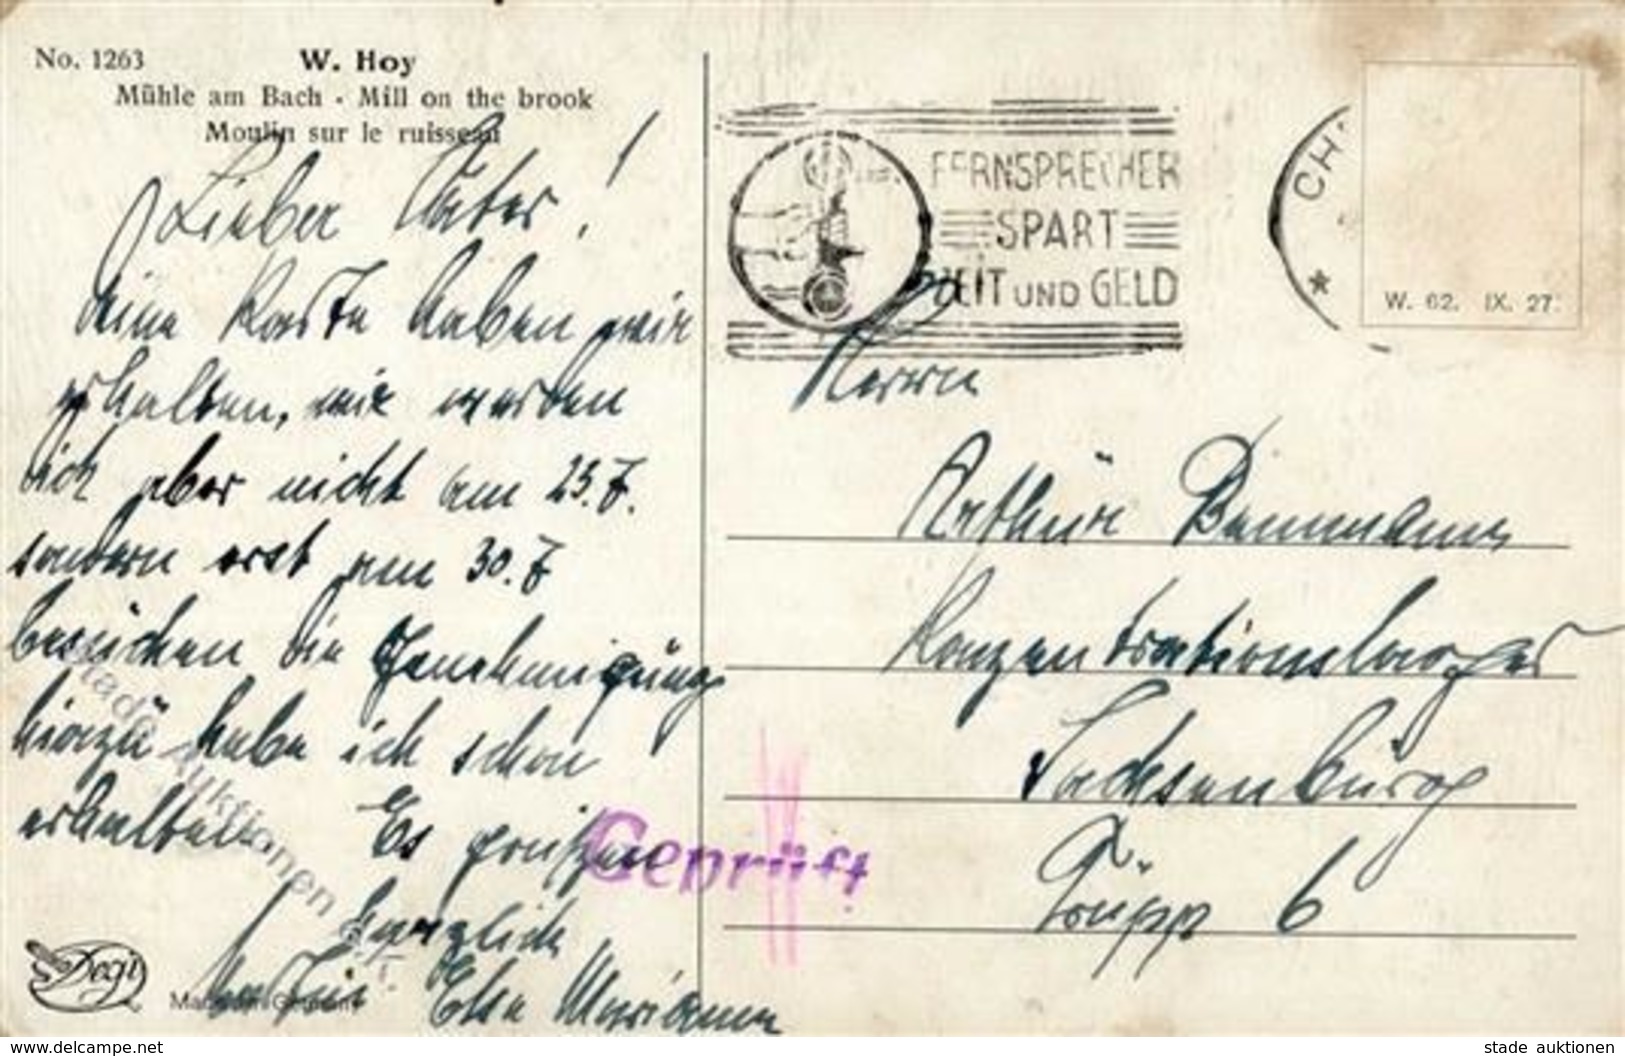 No. 1263
W. Hoy
Mühle am Bach - Mill on the brook
Moulin sur le ruisseau
Lieber Vater!
Deine Karte haben wir
erhalten, wir werden
dich aber nicht am 23.7.
sondern erst am 30.7
besuchen die Genehmigung
hierzu habe ich schon
erhalten. Es grüßen
herzlich
Else Marianne
FERNSPRECHER
SPART
ZEIT UND GELD
CH
W. 62. IX. 27.
Herrn
Arthur Baumann
Konzentrationslager
Sachsenburg
Trupp 6
Geprüft
Degi
Made in Germany
stade auktionen
www.delcampe.net
stade auktionen